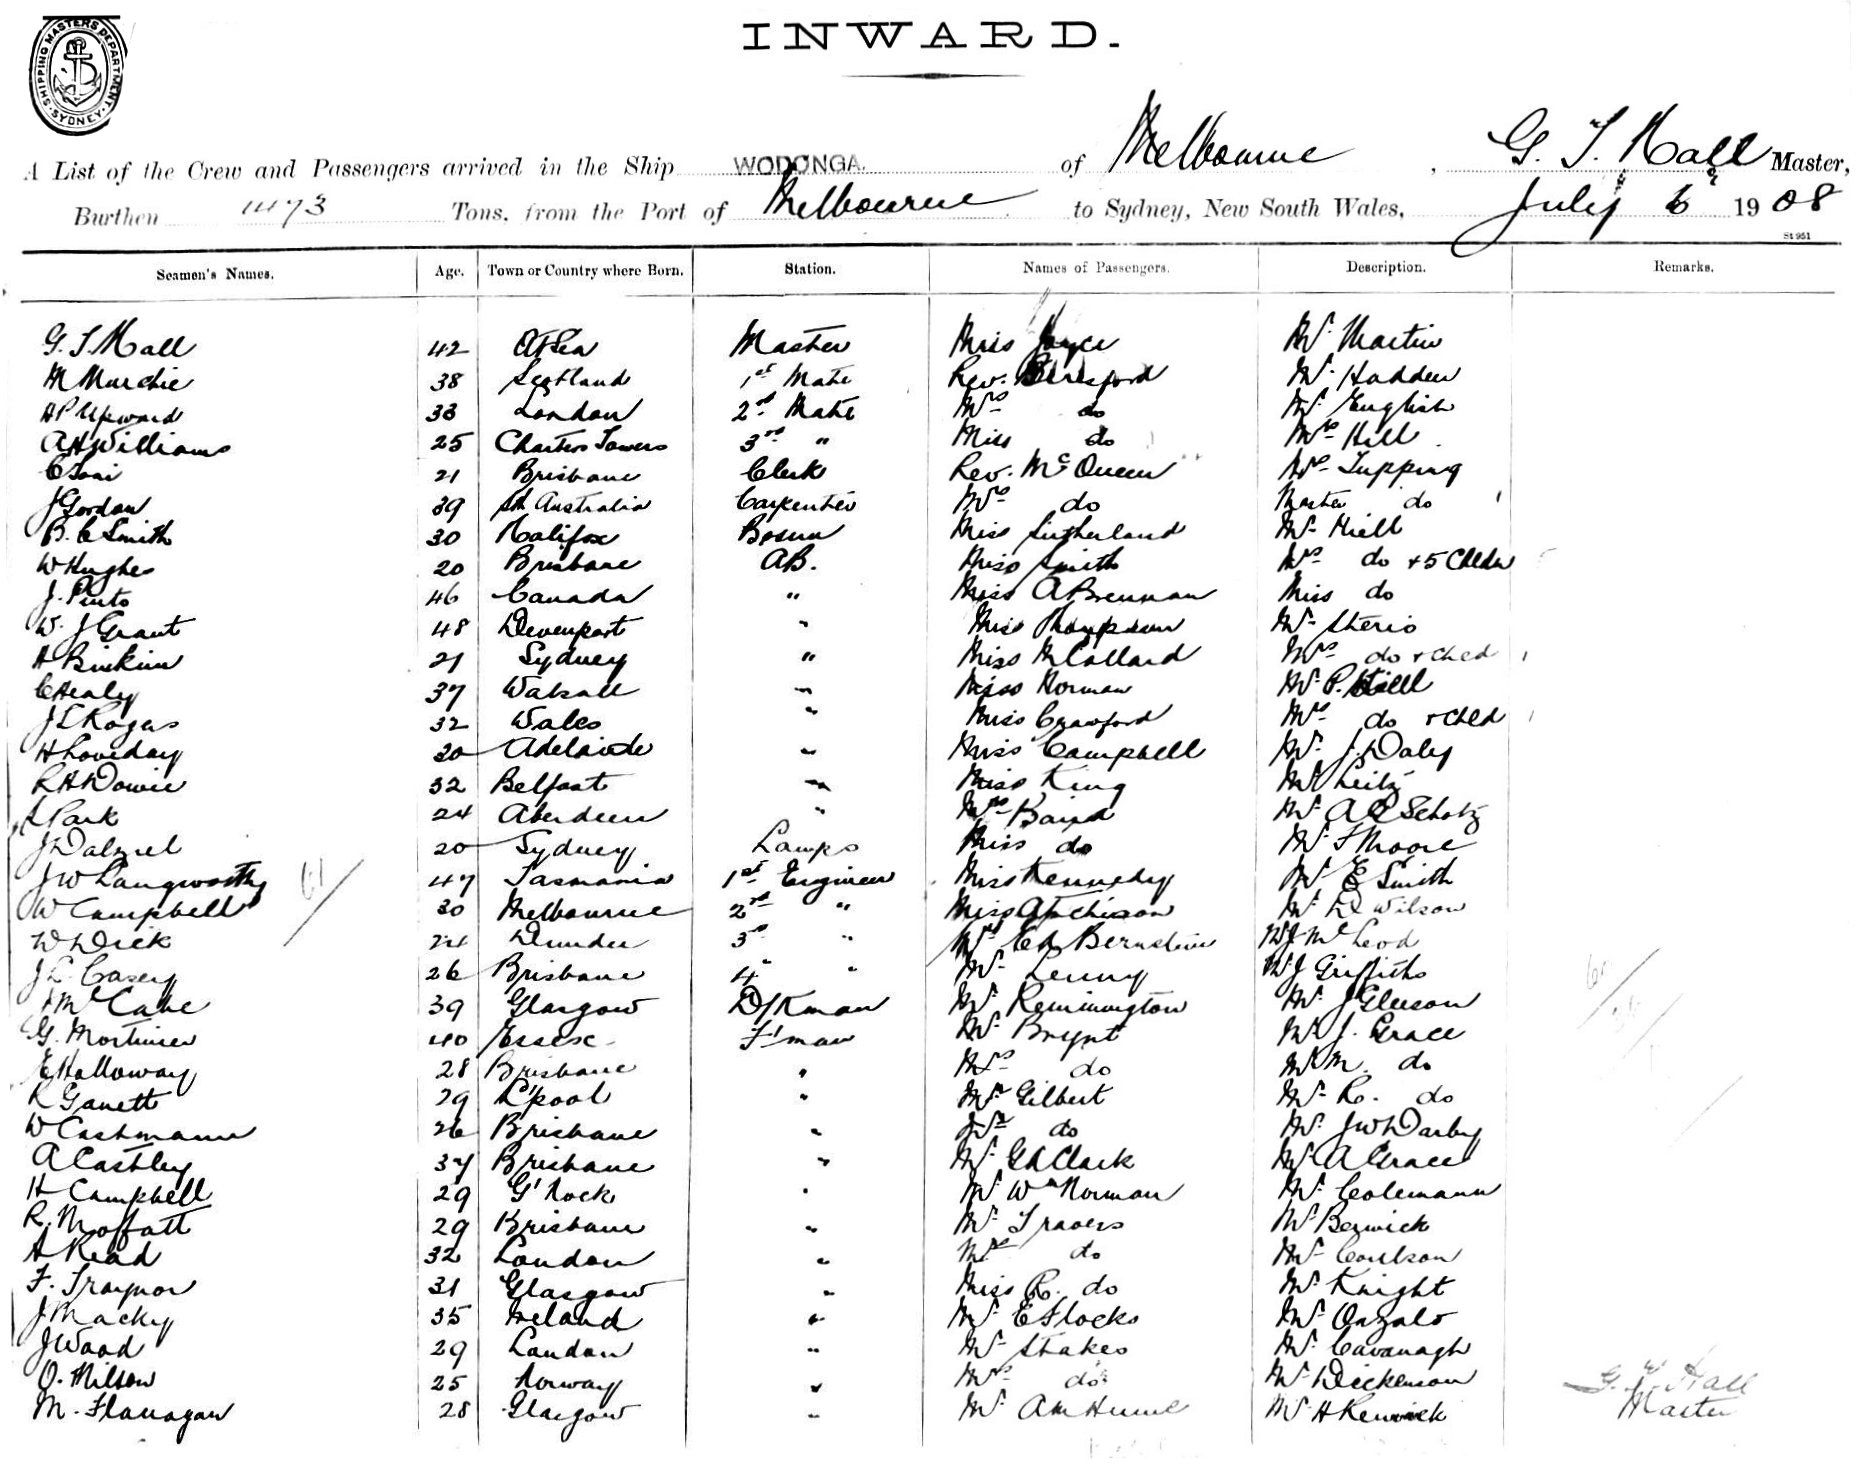 SHIPPING MASTERS DEPARTMENT
SYDNEY
INWARD.
A List of the Crew and Passengers arrived in the Ship WODONGA. of Melbourne, G. T. Hall Master,
Burthen 1473 Tons, from the Port of Melbourne to Sydney, New South Wales, July 6 1908
St 951
Seamen's Names. Age. Town or Country where Born. Station. Names of Passengers. Description. Remarks.
G. T. Hall 42 At Sea Master Miss Joyce Mr. Martin
M Murchie 38 Scotland 1st Mate Rev. Beresford Mr. Hadden
A P Upward 33 London 2nd Mate Mrs do Mr. English
A H Williams 25 Charters Towers 3rd " Miss do Mrs Hill
C 21 Brisbane Clerk Rev. McQueen Mrs Tupping
J Gordon 39 Sth Australia Carpenter Mrs do Master do
B. C Smith 30 Halifax Bosun Miss Sutherland Mr.
W Hughes 20 Brisbane AB. Miss Smith Mrs do + 5 Childn
J. Pinto 46 Canada " Miss A Brennan Miss do
W. J Grant 48 Devenport " Miss Thompson Mr
H 21 Sydney " Miss M Collard Mrs do + Chld
C Healy 37 Walsall " Miss Norman Mr P.
J L Rogers 32 Wales " Miss Crawford Mrs do + Chld
H Loveday 20 Adelaide " Miss Campbell Mr. J. Daly
R H Dowie 32 Belfast " Miss King Mr Leitz
Park 24 Aberdeen " Mrs Baird Mr A Schotz
J Dalziel 20 Sydney Lamps Miss do Mr F Moore
J W Langworthy 47 Tasmania 1st Engineer Miss Kennedy Mr E Smith
W Campbell 30 Melbourne 2nd " Miss Atchison Mr D Wilson
W Dick 24 Dundee 3rd " Mr Bernstein W J McLeod
J L Casey 26 Brisbane 4" " Mr. Lenny Mr J Griffiths
McCabe 39 Glasgow D/Kman Mr Remmington Mr J Gleeson
G. Mortimer 40 Essex F'man Mr. Brynt Mr J. Grace
E Holloway 28 Brisbane " Mrs do Mr M. do
R Garrett 29 L'pool " Mr Gilbert Mr R. do
W Cashmann 26 Brisbane " Mrs do Mr. J W Darby
A Castley 37 Brisbane " Mr. G A Clark Mr A Grace
H Campbell 29 G'nock " Mr Wm Norman Mr. Colemann
R. Moffatt 29 Brisbane " Mr Travers Mr Berwick
A Read 32 London " Mrs do Mr Coulson
F. Traynor 31 Glasgow " Miss R. do Mr Knight
J Macky 35 Ireland " Mr. E Flocks Mr. Onzalo
J Wood 29 London " Mr Stakes Mr. Cavanagh
O. Nilson 25 Norway " Mrs do Mr Dickenson
M. Flanagan 28 Glasgow " Mr. A M Hume Mr H Renwick
G. T. Hall
Master